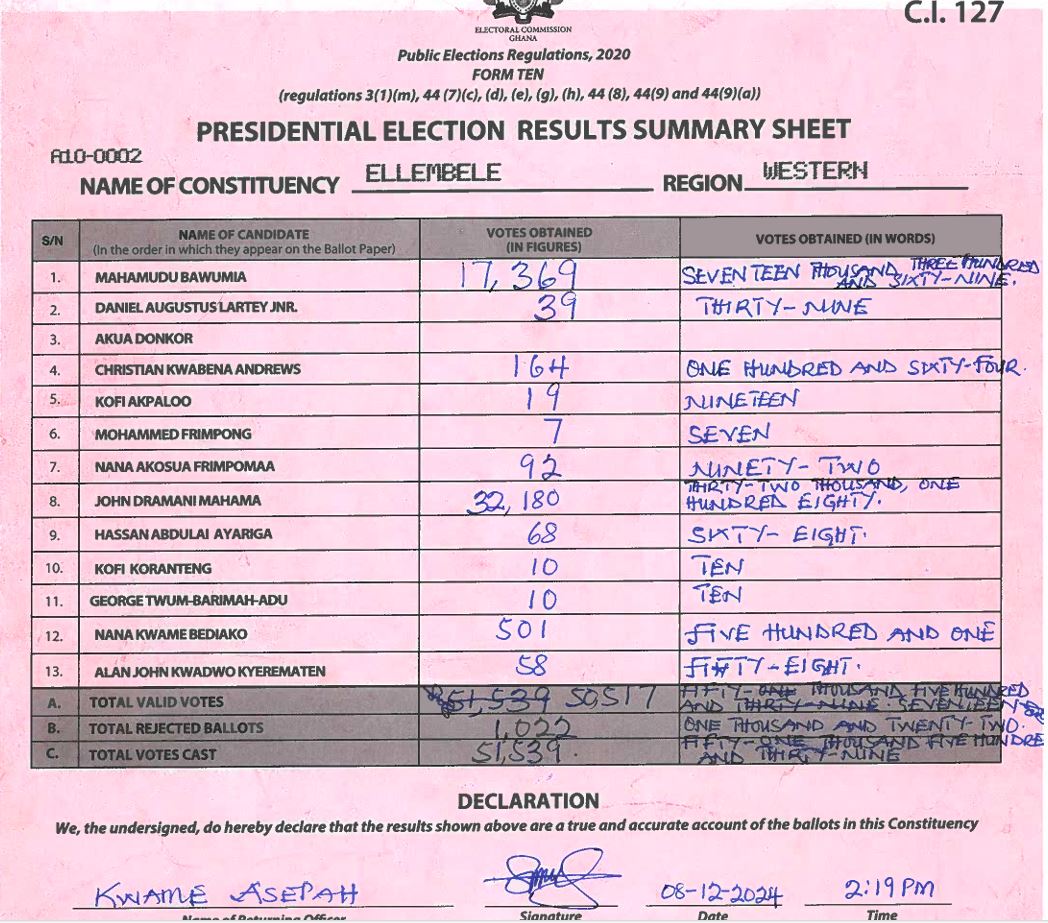 C.I. 127
ELECTORAL COMMISSION
GHANA
Public Elections Regulations, 2020
FORM TEN
(regulations 3(1)(m), 44 (7)(c), (d), (e), (g), (h), 44 (8), 44(9) and 44(9)(a))
PRESIDENTIAL ELECTION RESULTS SUMMARY SHEET
A10-0002
NAME OF CONSTITUENCY ELLEMBELE REGION WESTERN
S/N NAME OF CANDIDATE (In the order in which they appear on the Ballot Paper) VOTES OBTAINED (IN FIGURES) VOTES OBTAINED (IN WORDS)
1. MAHAMUDU BAWUMIA 17,369 SEVENTEEN THOUSAND THREE HUNDRED AND SIXTY-NINE.
2. DANIEL AUGUSTUS LARTEY JNR. 39 THIRTY-NINE
3. AKUA DONKOR
4. CHRISTIAN KWABENA ANDREWS 164 ONE HUNDRED AND SIXTY-FOUR.
5. KOFI AKPALOO 19 NINETEEN
6. MOHAMMED FRIMPONG 7 SEVEN
7. NANA AKOSUA FRIMPOMAA 92 NINETY-TWO
8. JOHN DRAMANI MAHAMA 32,180 THIRTY-TWO THOUSAND, ONE HUNDRED EIGHTY.
9. HASSAN ABDULAI AYARIGA 68 SIXTY-EIGHT.
10. KOFI KORANTENG 10 TEN
11. GEORGE TWUM-BARIMAH-ADU 10 TEN
12. NANA KWAME BEDIAKO 501 FIVE HUNDRED AND ONE
13. ALAN JOHN KWADWO KYEREMATEN 58 FIFTY-EIGHT.
A. TOTAL VALID VOTES 51,539 50517 FIFTY-ONE THOUSAND FIVE HUNDRED AND THIRTY-NINE. SEVENTEEN
B. TOTAL REJECTED BALLOTS 1,022 ONE THOUSAND AND TWENTY-TWO.
C. TOTAL VOTES CAST 51,539. FIFTY-ONE THOUSAND FIVE HUNDRED AND THIRTY-NINE
DECLARATION
We, the undersigned, do hereby declare that the results shown above are a true and accurate account of the ballots in this Constituency
KWAME ASEPAH 08-12-2024 2:19PM
Name of Returning Officer Signature Date Time